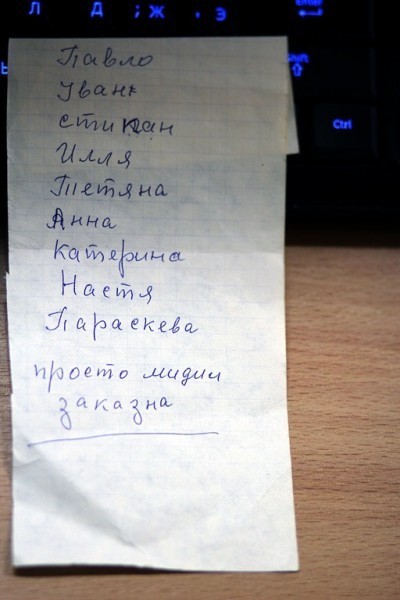 Л Д ; Ж . Э Enter
Shift
Ctrl
Павло
Илля
Тетяна
Анна
катерина
Настя
Параскева
просто
заказна